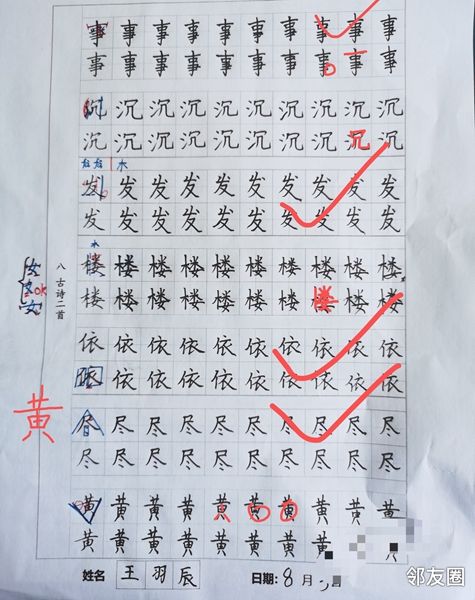 事事事事事事事事事
事事事事事事事事事
沉沉沉沉沉沉沉沉沉
沉沉沉沉沉沉沉沉沉
木
发发发发发发发发发
发发发发发发发发发
木
楼楼楼楼楼楼楼楼楼
楼楼楼楼楼楼楼楼楼
女
OK
女
八 古诗二首
依依依依依依依依依
依依依依依依依依依
尽尽尽尽尽尽尽尽尽
尽尽尽尽尽尽尽尽尽
黄
黄黄黄黄黄黄黄黄黄
黄黄黄黄黄黄黄
姓名 王羽辰 日期: 8月 日
邻友圈